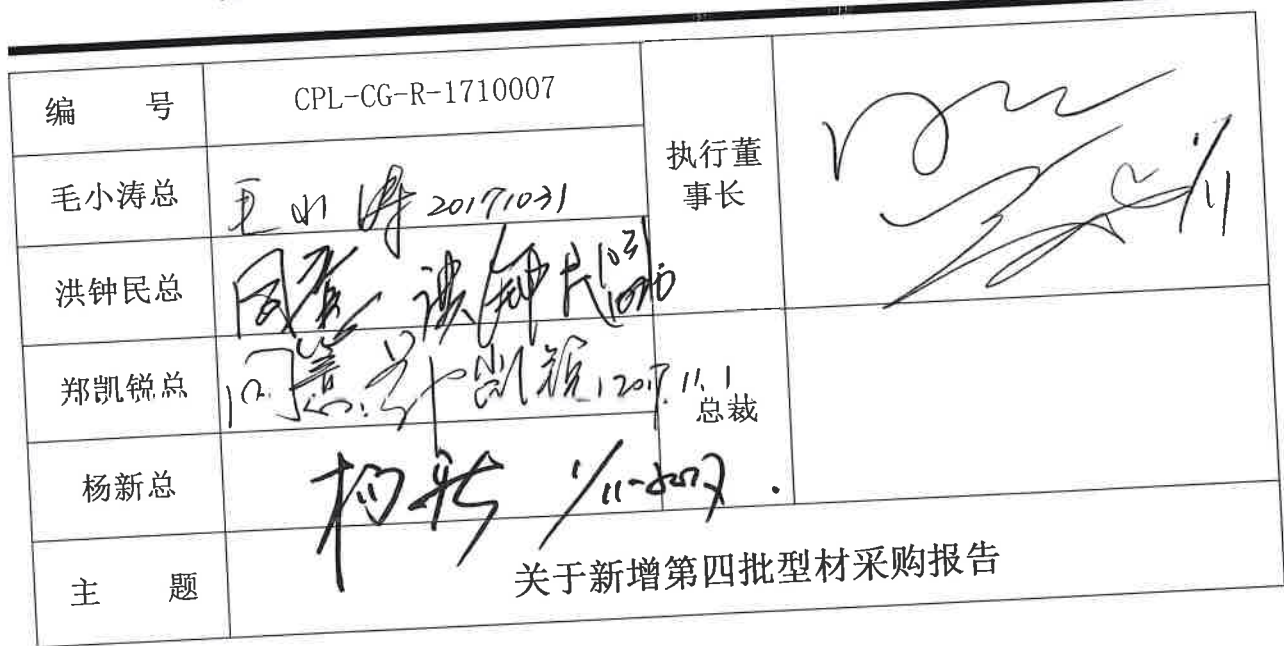 编 号 CPL-CG-R-1710007
执行董事长 1/11
毛小涛总 毛小涛 20171031
洪钟民总 同意 洪钟民
郑凯锐总 同意 郑凯锐 2017.11.1
总裁
杨新总 杨新 1/11-2017.
主 题 关于新增第四批型材采购报告